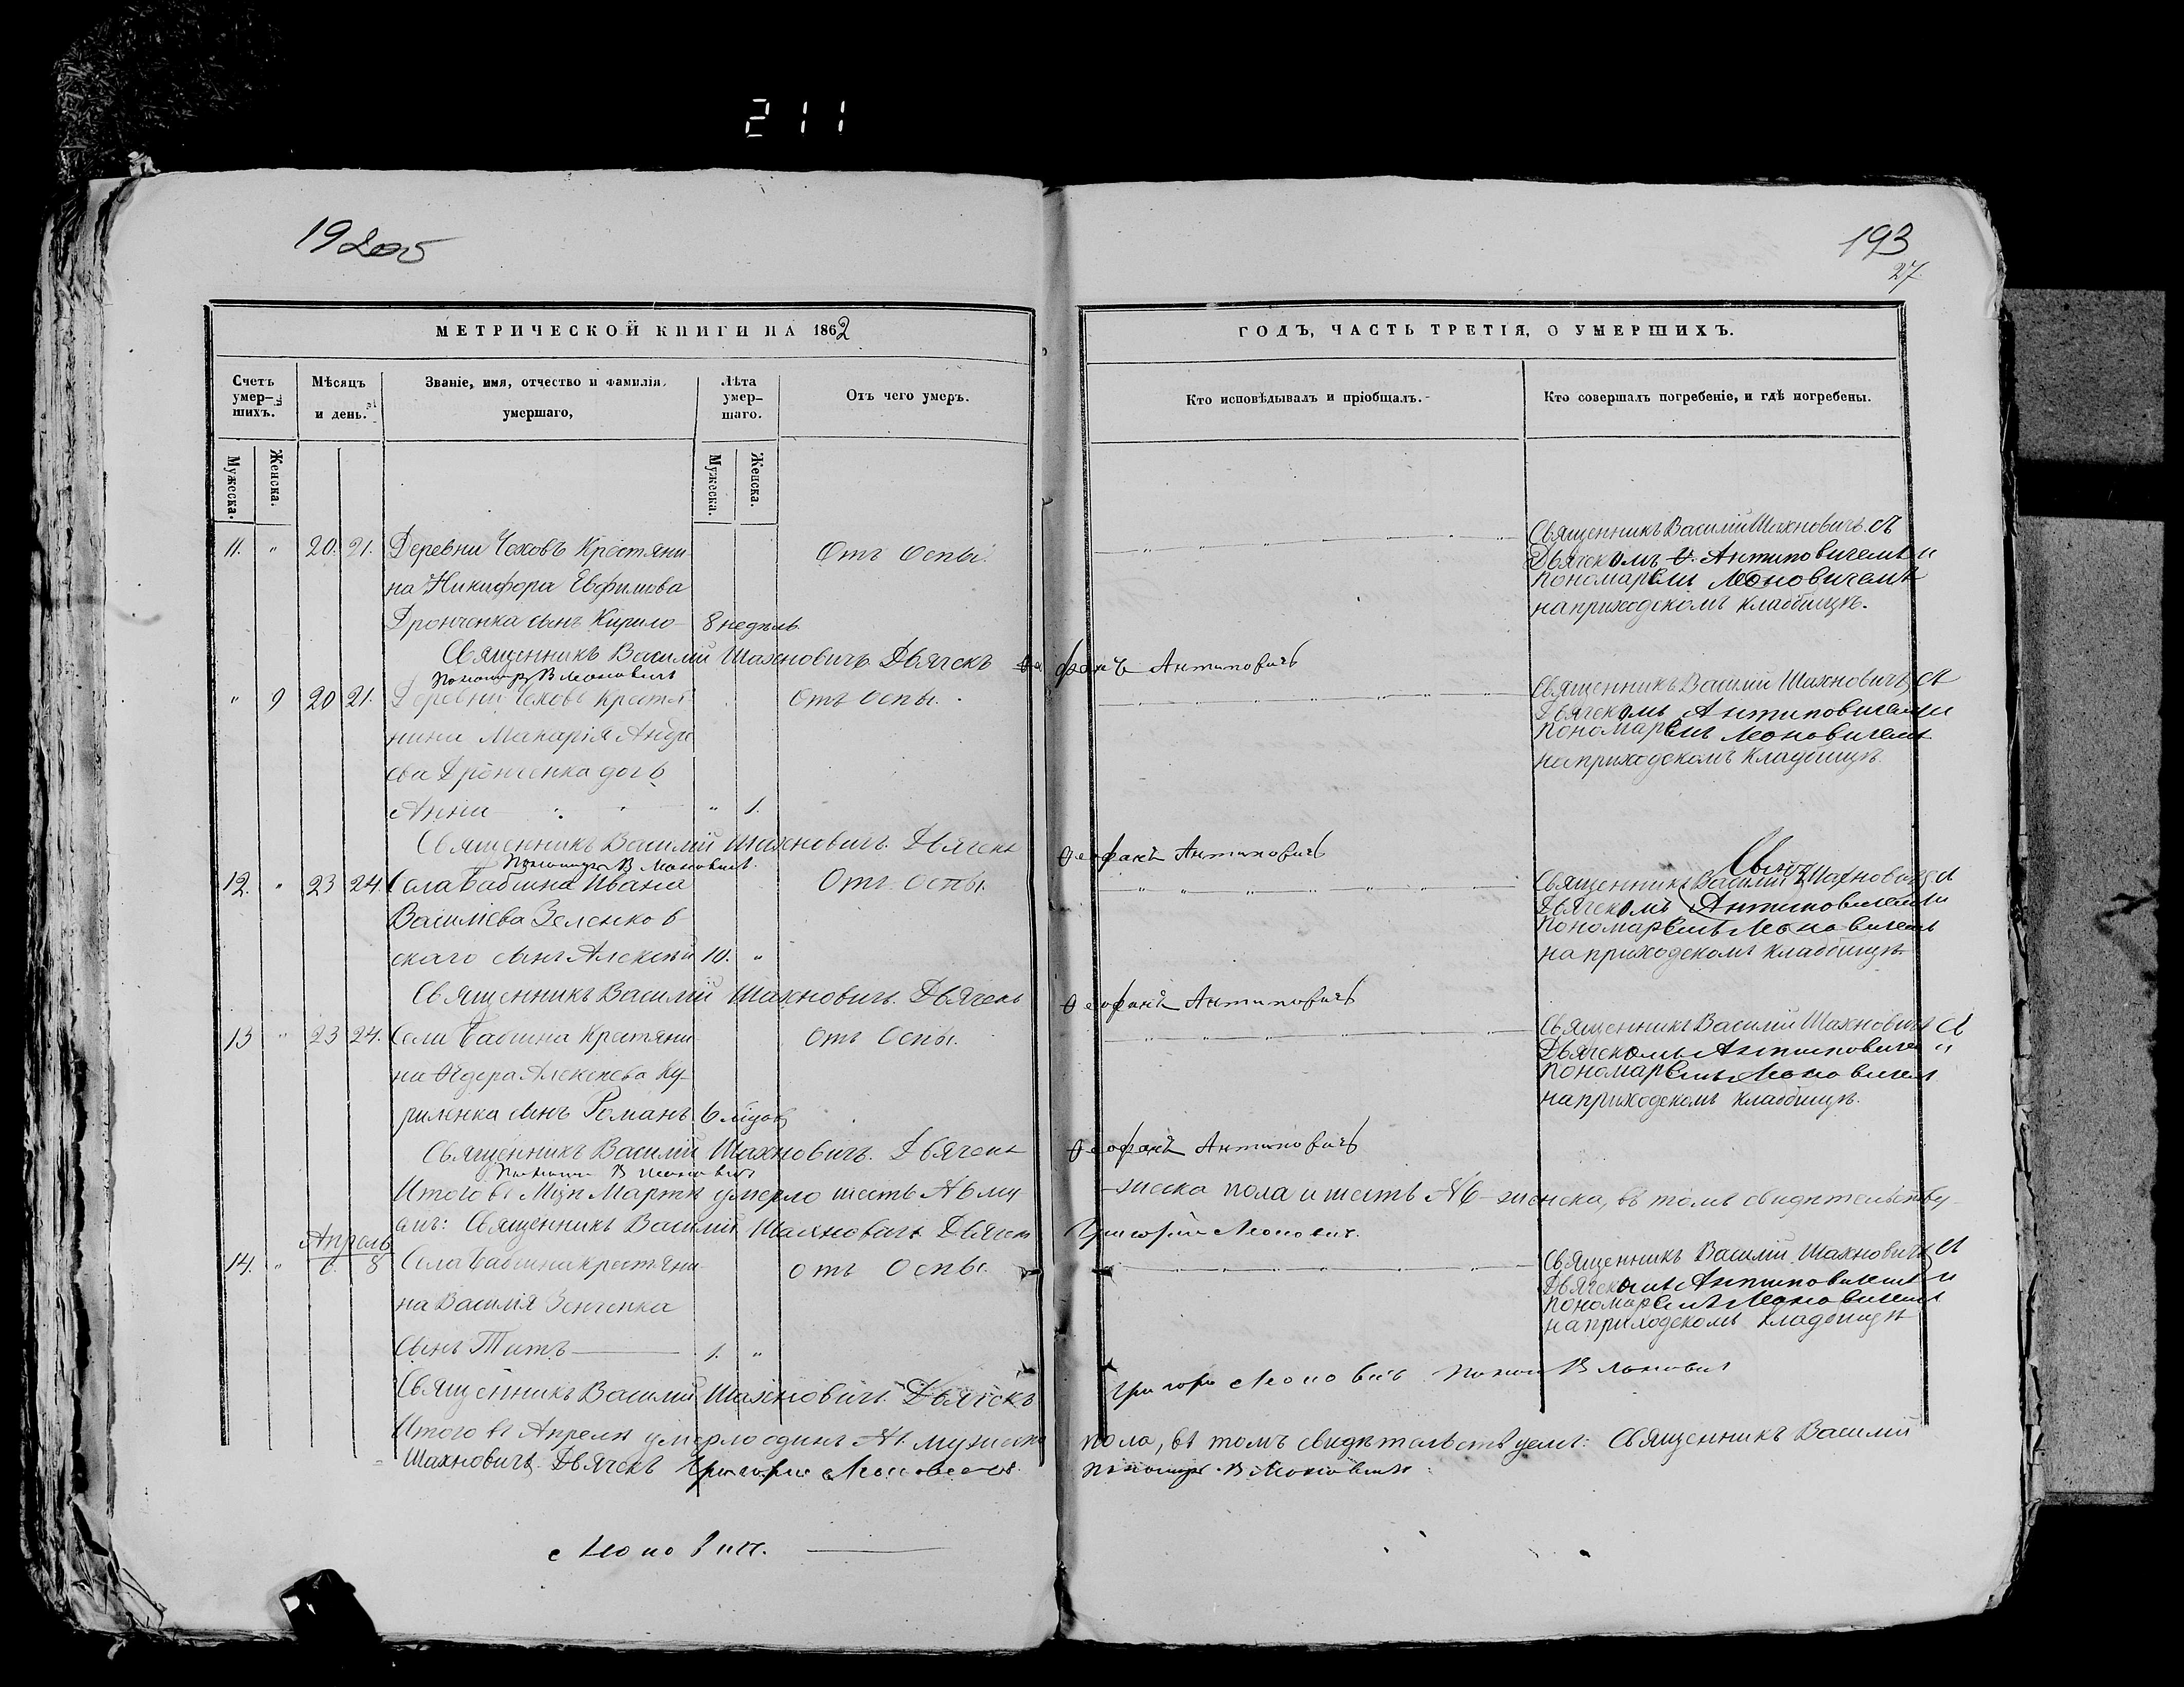 211
193
27.
МЕТРИЧЕСКОЙ КНИГИ НА 1862
ГОДЪ, ЧАСТЬ ТРЕТІЯ, О УМЕРШИХЪ.
Счетъ умер-шихъ.
Мѣсяцъ и день.
Званіе, имя, отчество и фамилія умершаго,
Лѣта умер-шаго.
Отъ чего умеръ.
Кто исповѣдывалъ и пріобщалъ.
Кто совершалъ погребеніе, и гдѣ погребены.
Мужеска.
Женска.
Мужеска.
Женска.
11. " 20. 21. Деревни Чеховъ Крестяни- Отъ Оспы.
на Никифора Евфимова
Дронченка сынъ Кирило 8 недѣль.
Священникъ Василій Шахновичъ. съ
Дьячкомъ Антиповичемъ и
пономаремъ Моновичемъ
на приходскомъ кладбищѣ.
Священникъ Василій Шахновичъ. Дьячекъ Феофанъ Антиповичъ
Пономарь В Моновичъ
" 9 20 21. Деревни Чеховъ крестья- Отъ оспы.
нина Макарія Андре
ева Дронченка дочь
Анна " 1.
Священникъ Василій Шахновичъ съ
Дьячкомъ Антиповичемъ и
пономаремъ Моновичемъ
на приходскомъ кладбищѣ.
Священникъ Василій Шахновичъ. Дьячекъ Феофанъ Антиповичъ
Пономарь В Моновичъ.
12. " 23 24 Села Бабчина Ивана Отъ Оспы.
Василіева Зеленков
скаго сынъ Алексѣй 10. "
Священникъ Василій Шахновичъ съ
Дьячкомъ Антиповичемъ и
пономаремъ Моновичемъ
на приходскомъ кладбищѣ
Священникъ Василій Шахновичъ. Дьячекъ Феофанъ Антиповичъ
13 " 23 24. Села Бабчина Крестяни- Отъ Оспы.
на Ѳедора Алексѣева Ку-
риленка сынъ Романъ. 6 мѣсяц
Священникъ Василій Шахновичъ съ
Дьячкомъ Антиповиче и
пономаремъ Моновичем
на приходскомъ кладбищѣ.
Священникъ Василій Шахновичъ. Дьячекъ Феофанъ Антиповичъ
Пономарь В Моновичъ
Итого въ Мцѣ Мартѣ умерло шесть №6 му- жеска пола и шесть №6 женска, въ томъ свидѣтельству-
емъ: Священникъ Василій Шахновичъ. Дьячек Григорій Моновичъ.
Апрель
14. " 6 8 Села Бабчина крестяни- Отъ Оспы.
на Василія Зенченка
сынъ Титъ 1. "
Священникъ Василій Шахновичъ съ
Дьячкомъ Антиповичемъ и
пономаремъ Моновичемъ
на приходскомъ кладбищѣ
Священникъ Василій Шахновичъ. Дьячекъ Григорі Моновичъ В Моновичъ
Итого въ Апрелѣ умерло одинъ №1. мужеска пола, въ томъ свидѣтельствуемъ: Священникъ Василій
Шахновичъ. Дьячекъ Григорій Моновичъ. Пономарь В Моновичъ
Моновичъ.